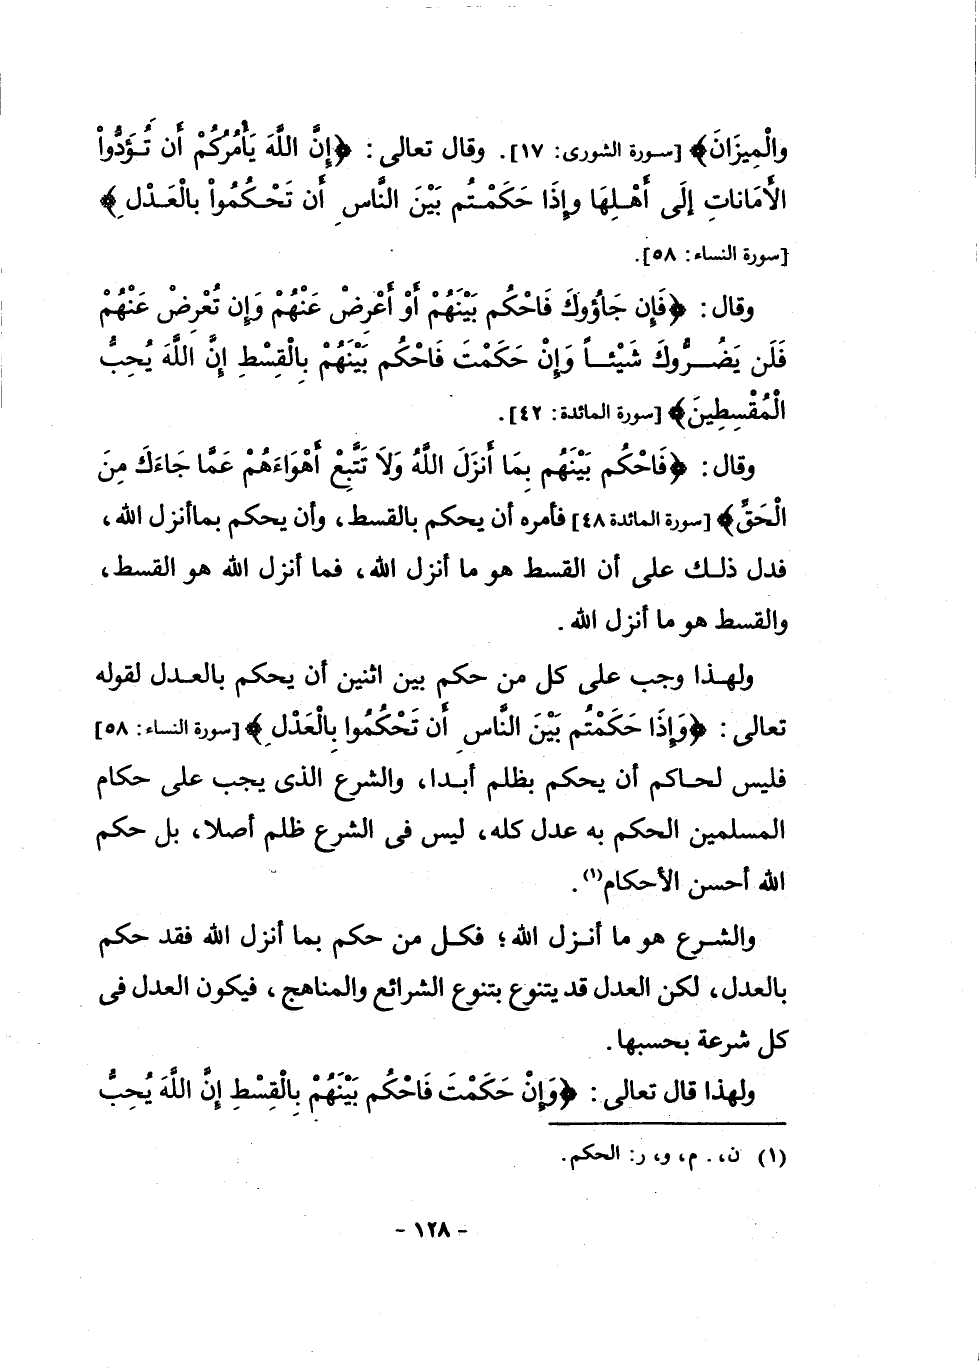 والْمِيزَانَ﴾ [سورة الشورى: ١٧]. وقال تعالى: ﴿إِنَّ اللَّهَ يَأْمُرُكُمْ أَن تُـؤَدُّواْ
الأَمَانَاتِ إِلَى أَهْـلِهَا وإِذَا حَكَمْـتُم بَيْنَ النَّاسِ أَن تَحْـكُمُواْ بالْعَـدْلِ﴾
[سورة النساء: ٥٨].
وقال: ﴿فَإِن جَاؤُوكَ فَاحْكُم بَيْنَهُمْ أَوْ أَعْرِضْ عَنْهُمْ وَإِن تُعْرِضْ عَنْهُمْ
فَلَن يَضُــرُّوكَ شَيْئــاً وَإِنْ حَكَمْتَ فَاحْكُم بَيْنَهُمْ بِالْقِسْطِ إِنَّ اللَّهَ يُحِبُّ
الْمُقْسِطِينَ﴾ [سورة المائدة: ٤٢].
وقال: ﴿فَاحْكُم بَيْنَهُم بِمَا أَنزَلَ اللَّهُ وَلاَ تَتَّبِعْ أَهْوَاءَهُمْ عَمَّا جَاءَكَ مِنَ
الْحَقِّ﴾ [سورة المائدة ٤٨] فأمره أن يحكم بالقسط، وأن يحكم بماأنزل الله،
فدل ذلـك على أن القسط هو ما أنزل الله، فما أنزل الله هو القسط،
والقسط هو ما أنزل الله.
ولهـذا وجب على كل من حكم بين اثنين أن يحكم بالعـدل لقوله
تعالى: ﴿وَإِذَا حَكَمْتُم بَيْنَ النَّاسِ أَن تَحْكُمُوا بِالْعَدْلِ﴾ [سورة النساء: ٥٨]
فليس لحـاكم أن يحكم بظلم أبـدا، والشرع الذى يجب على حكام
المسلمين الحكم به عدل كله، ليس فى الشرع ظلم أصلا، بل حكم
الله أحسن الأحكام(١).
والشـرع هو ما أنـزل الله؛ فكـل من حكم بما أنزل الله فقد حكم
بالعدل، لكن العدل قد يتنوع بتنوع الشرائع والمناهج، فيكون العدل فى
كل شرعة بحسبها.
ولهذا قال تعالى: ﴿وَإِنْ حَكَمْتَ فَاحْكُم بَيْنَهُمْ بِالْقِسْطِ إِنَّ اللَّهَ يُحِبُّ
(١) ن، . م، و، ر: الحكم.
- ١٢٨ -